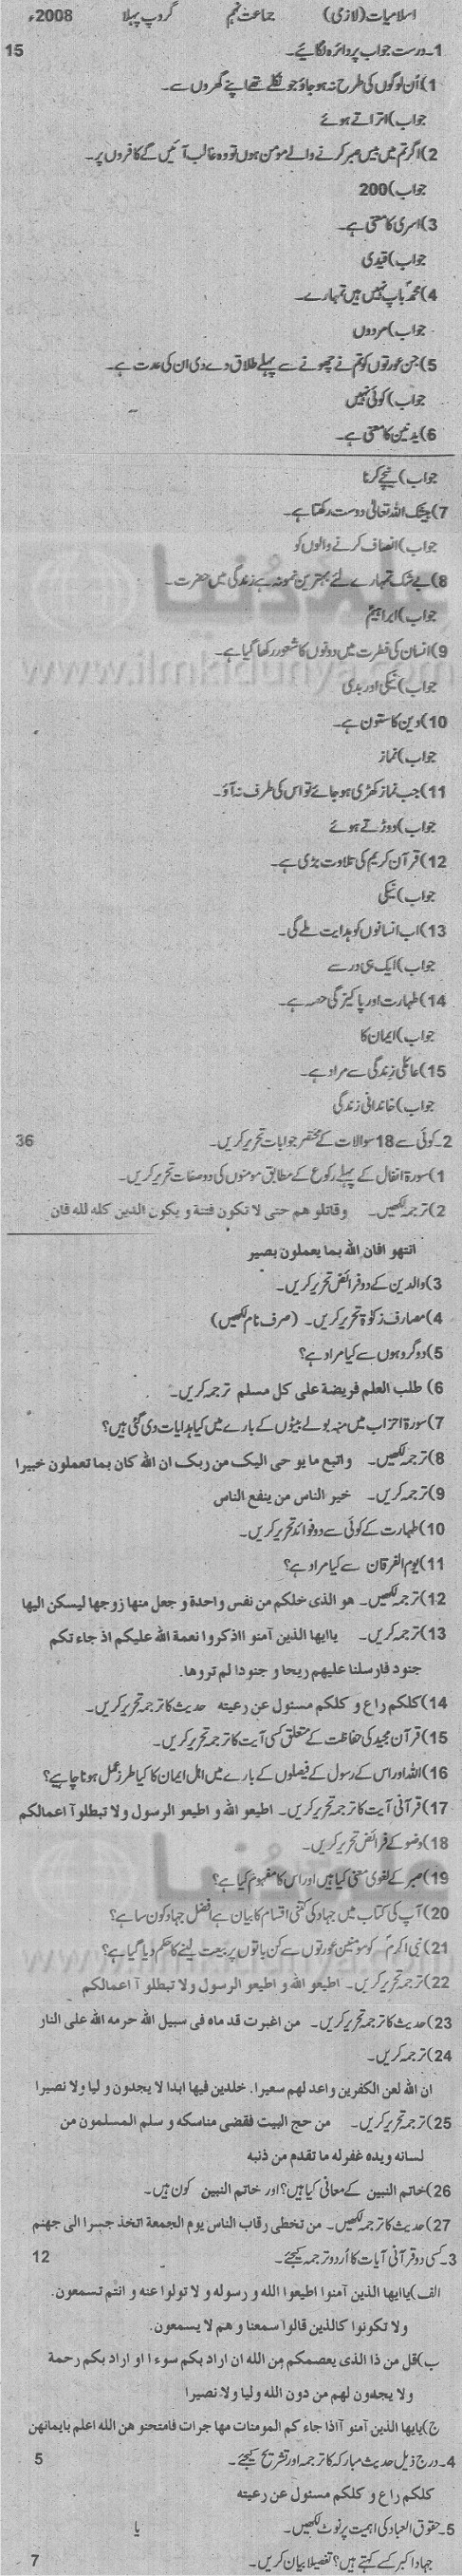 اسلامیات (لازمی) جماعت نہم گروپ پہلا 2008ء
1۔درست جواب پر دائرہ لگائیے۔ 15
1)اُن لوگوں کی طرح نہ ہو جاؤ جو نکلے تھے اپنے گھروں سے۔
جواب)اتراتے ہوئے
2)اگر تم میں بیس صبر کرنے والے مومن ہوں تو وہ غالب آئیں گے کافروں پر۔
جواب)200
3)اسری کا معنی ہے۔
جواب)قیدی
4)محمدؐ باپ نہیں ہیں تمہارے۔
جواب)مردوں
5)جن عورتوں کو تم نے چھونے سے پہلے طلاق دے دی ان کی عدت ہے۔
جواب)کوئی نہیں
6)یدنین کا معنی ہے۔
جواب)نیچے کرنا
7)بیشک اللہ تعالیٰ دوست رکھتا ہے۔
جواب)انصاف کرنے والوں کو
8)بے شک تمہارے لئے بہترین نمونہ ہے زندگی میں حضرت۔
جواب)ابراہیمؑ
9)انسان کی فطرت میں دونوں کا شعور رکھا گیا ہے۔
www.ilmkidunya.com
جواب)نیکی اور بدی
10)دین کا ستون ہے۔
جواب)نماز
11)جب نماز کھڑی ہو جائے تو اس کی طرف نہ آؤ۔
جواب)دوڑتے ہوئے
12)قرآن کریم کی تلاوت بڑی ہے۔
جواب)نیکی
13)اب انسانوں کو ہدایت ملے گی۔
جواب)ایک ہی در سے
14)طہارت اور پاکیزگی حصہ ہے۔
جواب)ایمان کا
15)عائلی زندگی سے مراد ہے۔
جواب)خاندانی زندگی
2۔کوئی سے 18 سوالات کے مختصر جوابات تحریر کریں۔ 36
1)سورۃ انفال کے پہلے رکوع کے مطابق مومنوں کی دو صفات تحریر کریں۔
2)ترجمہ لکھیں۔ وقاتلو هم حتی لا تکون فتنة و یکون الدین کله لله فان
انتهو افان الله بما یعملون بصیر
3)والدین کے دو فرائض تحریر کریں۔
4)مصارف زکوٰۃ تحریر کریں۔ (صرف نام لکھیں)
5)دو گروہوں سے کیا مراد ہے؟
6) طلب العلم فریضة علی کل مسلم ترجمہ کریں۔
7)سورۃ احزاب میں منہ بولے بیٹوں کے بارے میں کیا ہدایات دی گئی ہیں؟
8)ترجمہ لکھیں۔ واتبع ما یو حی الیک من ربک ان الله کان بما تعملون خبیرا
9)ترجمہ کریں۔ خیر الناس من ینفع الناس
10)طہارت کے کوئی سے دو فوائد تحریر کریں۔
11)یوم الفرقان سے کیا مراد ہے؟
12)ترجمہ لکھیں۔ هو الذی خلکم من نفس واحدة و جعل منها زوجها لیسکن الیها
13)ترجمہ کریں۔ یاایها الذین آمنو ااذکروا نعمة الله علیکم اذ جاء تکم
جنود فارسلنا علیهم ریحا و جنودا لم تروها.
14)کلکم راع و کلکم مسئول عن رعیته حدیث کا ترجمہ تحریر کریں۔
15)قرآن مجید کی حفاظت کے متعلق کسی آیت کا ترجمہ تحریر کریں۔
16)اللہ اور اس کے رسول کے فیصلوں کے بارے میں اہل ایمان کا کیا طرز عمل ہونا چاہیے؟
17)قرآنی آیت کا ترجمہ تحریر کریں۔ اطیعو الله و اطیعو الرسول ولا تبطلوآ اعمالکم
18)وضو کے فرائض تحریر کریں۔
19)صبر کے لغوی معنی کیا ہیں اور اس کا مفہوم کیا ہے؟
20)آپ کی کتاب میں جہاد کی کتنی اقسام کا بیان ہے افضل جہاد کون سا ہے؟
21)نبی اکرمؐ کو مومنین عورتوں سے کن باتوں پر بیعت لینے کا حکم دیا گیا ہے؟
www.ilmkidunya.com
22)ترجمہ تحریر کریں۔ اطیعو الله و اطیعو الرسول ولا تبطلو آ اعمالکم
23)حدیث کا ترجمہ تحریر کریں۔ من اغبرت قد ماه فی سبیل الله حرمه الله علی النار
24)ترجمہ کریں۔
ان الله لعن الکفرین واعد لهم سعیرا. خلدین فیها ابدا لا یجدون و لیا ولا نصیرا
25)ترجمہ تحریر کریں۔ من حج البیت فقضی مناسکه و سلم المسلمون من
لسانه ویده غفرله ما تقدم من ذنبه
26)خاتم النبین کے معانی کیا ہیں؟ اور خاتم النبین کون ہیں۔
27)حدیث کا ترجمہ لکھیں۔ من تخطی رقاب الناس یوم الجمعة اتخذ جسرا الی جهنم
3۔کسی دو قرآنی آیات کا اُردو ترجمہ کیجئے۔ 12
الف)یاایها الذین آمنوا اطیعوا الله و رسوله و لا تولوا عنه و انتم تسمعون.
ولا تکونوا کالذین قالوا سمعنا و هم لا یسمعون.
ب)قل من ذا الذی یعصمکم من الله ان اراد بکم سوء ا او اراد بکم رحمة
ولا یجدون لهم من دون الله ولیا ولا نصیرا
ج)یایها الذین آمنو آاذا جاء کم المومنات مها جرات فامتحنو هن الله اعلم بایمانهن
4۔درج ذیل حدیث مبارکہ کا ترجمہ اور تشریح کیجئے۔ 5
کلکم راع و کلکم مسئول عن رعیته
5۔حقوق العباد کی اہمیت پر نوٹ لکھیں۔ یا
جہاد اکبر کسے کہتے ہیں؟ تفصیلاً بیان کریں۔ 7